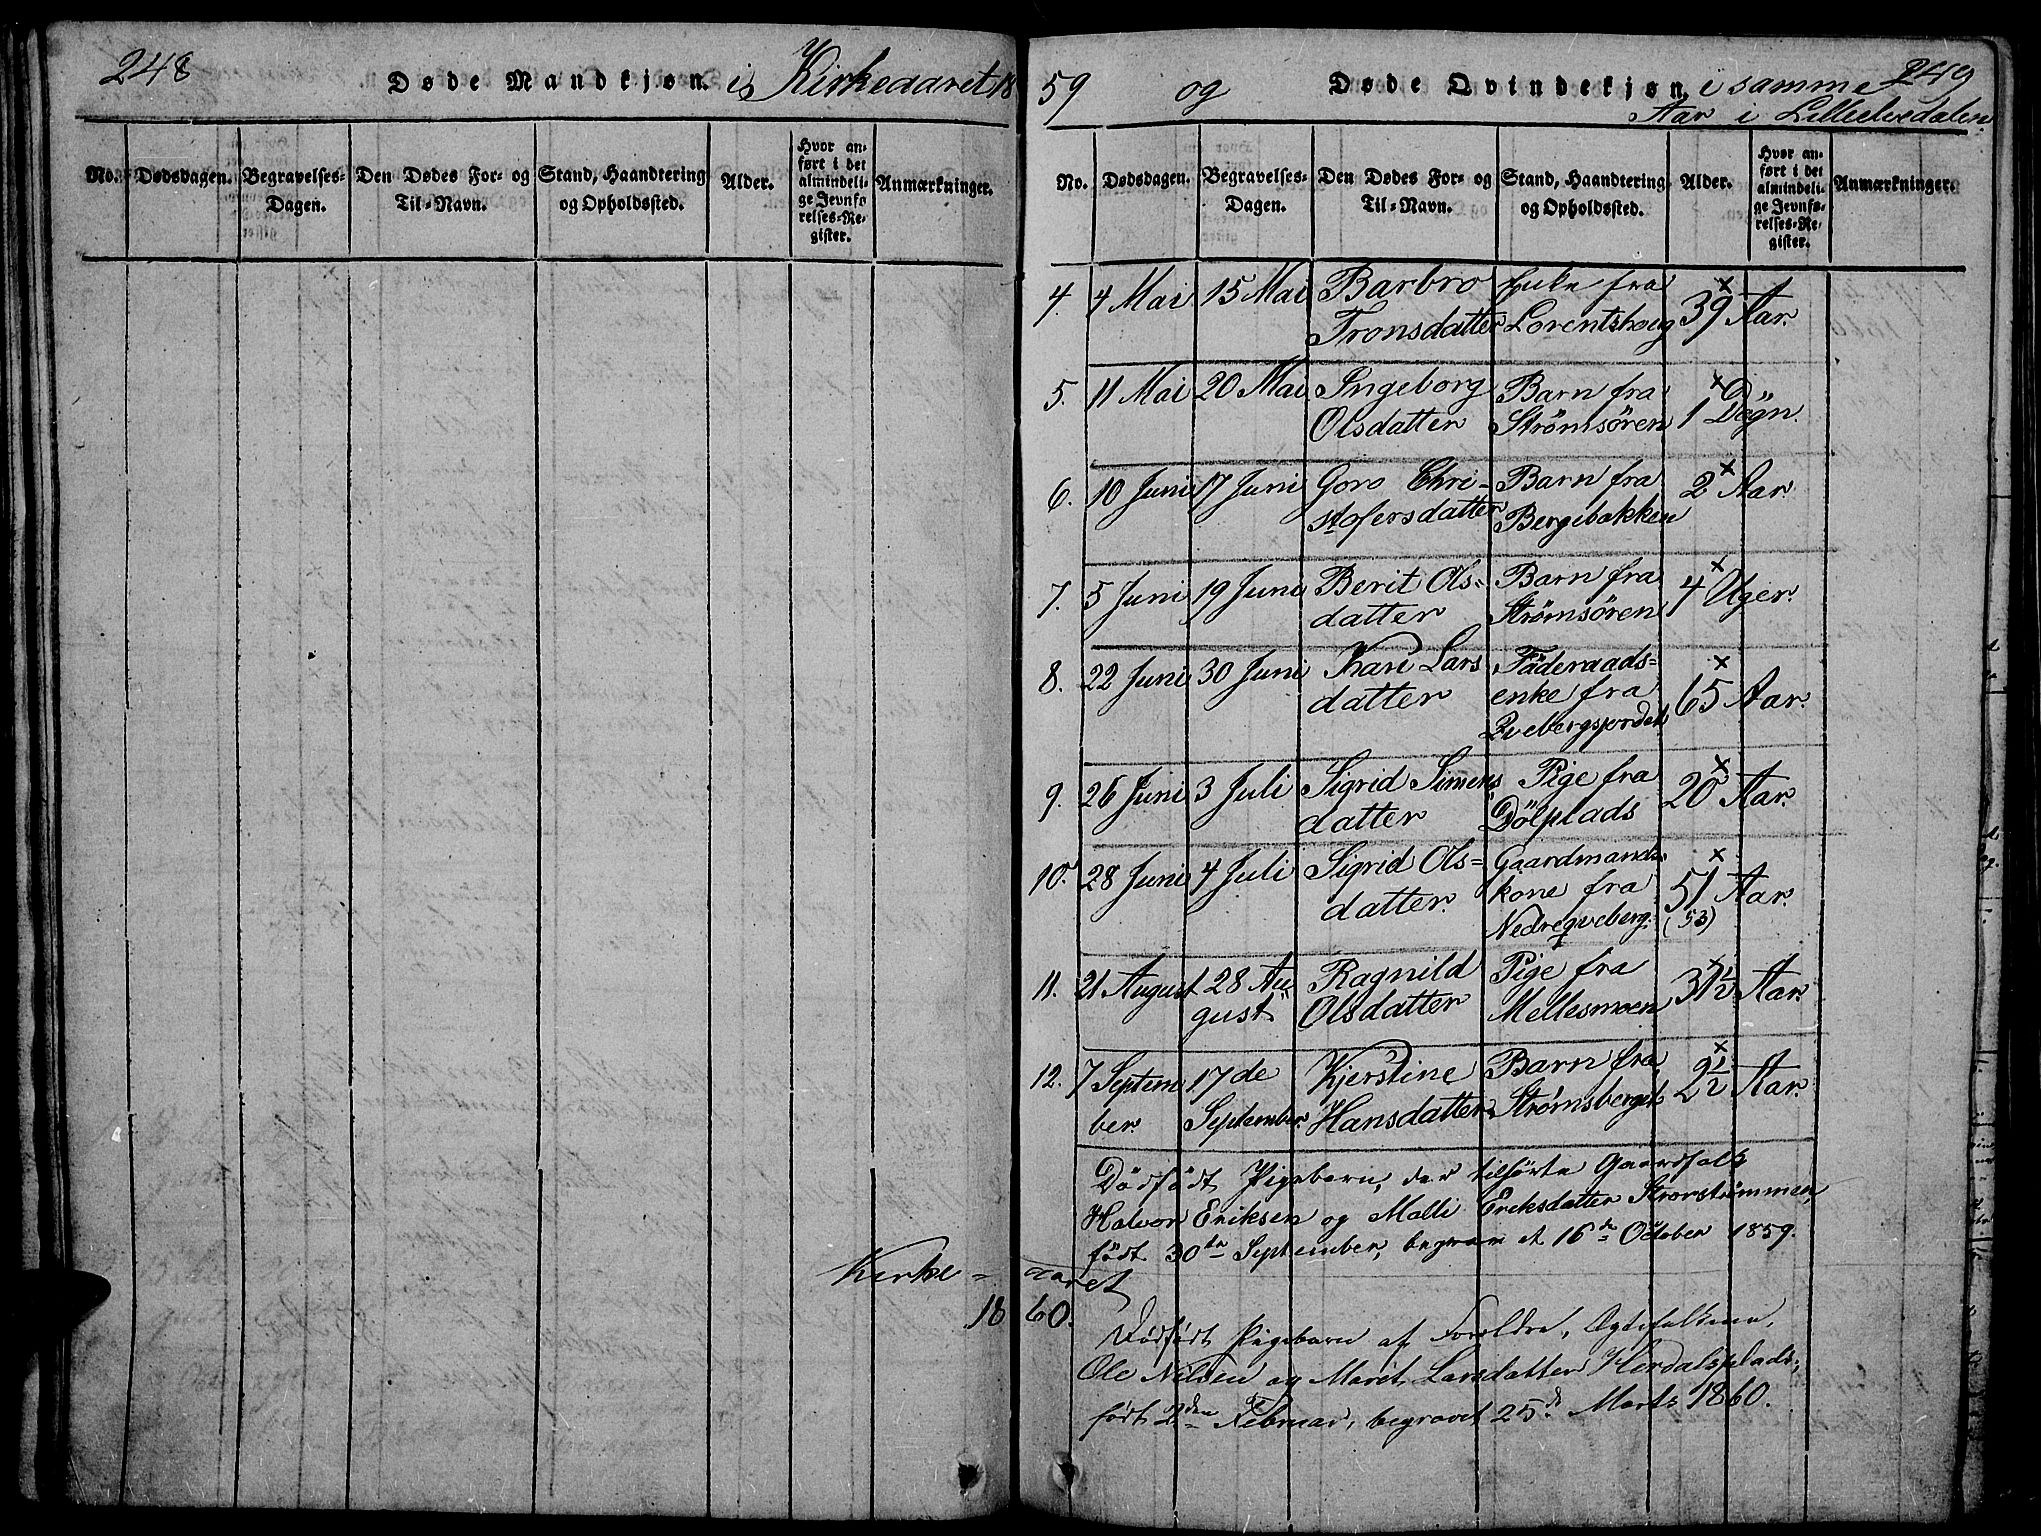 248
Døde Mandkjøn. i Kirkeaaret 18
59 og Døde Qvindekjøn i samme
249
Aar i Lilleelvedalen.
No. Dødsdagen. Begravelses-Dagen. Den Dødes For- og Til-Navn. Stand, Haandtering og Opholdssted. Alder. Hvor anført i det almindelige Jevnførelses-Register. Anmærkninger.
No. Dødsdagen. Begravelses-Dagen. Den Dødes For- og Til-Navn. Stand, Haandtering og Opholdssted. Alder. Hvor anført i det almindelige Jevnførelses-Register. Anmærkninger.
4. 4 Mai 15 Mai Barbro Enke fra x
Tronsdatter Lorentshoug 39 Aar.
5. 11 Mai 20 Mai Ingeborg Barn fra x
Olsdatter Strømsören 1 Dögn.
6. 10 Juni 17 Juni Goro Chri- Barn fra x 2 Aar
stofersdatter Bergebakken
7. 5 Juni 19 Juni Berit Ols= Barn fra x 4 Uger.
datter Strømsören
8. 22 Juni 30 Juni Kari Lars Föderaads= x
datter enke fra 65 Aar.
Qvebergsjordet
9. 26 Juni 3 Juli Sigrid Simens Pige fra x 20 Aar.
datter Dölplads
10. 28 Juni 4 Juli Sigrid Ols= Gaardmands x
datter. kone fra 51 Aar.
Nedreqveberg. (53)
11. 21 August 28 Au Ragnild Pige fra x
gust Olsdatter Mellesmoen 3 1/2 Aar.
12. 7 Septem 17de Kjerstine Barn fra x
ber. September. Hansdatter Strømsberget 2 1/2 Aar.
Dödfödt Pigebarn, der tilhørte Gaardfolk
Halvor Eriksen og Malli Eriksdatter Storstrømmen,
födt 30te September, begravet 16de October 1859.
Kirke = aaret
18 60.
Dödfödt Pigebarn af Forældre, Ægtefolkene,
Ole Nilsen og Marit Larsdatter Herdalsplads,
født 2den Februar, begravet 25d Marts 1860.